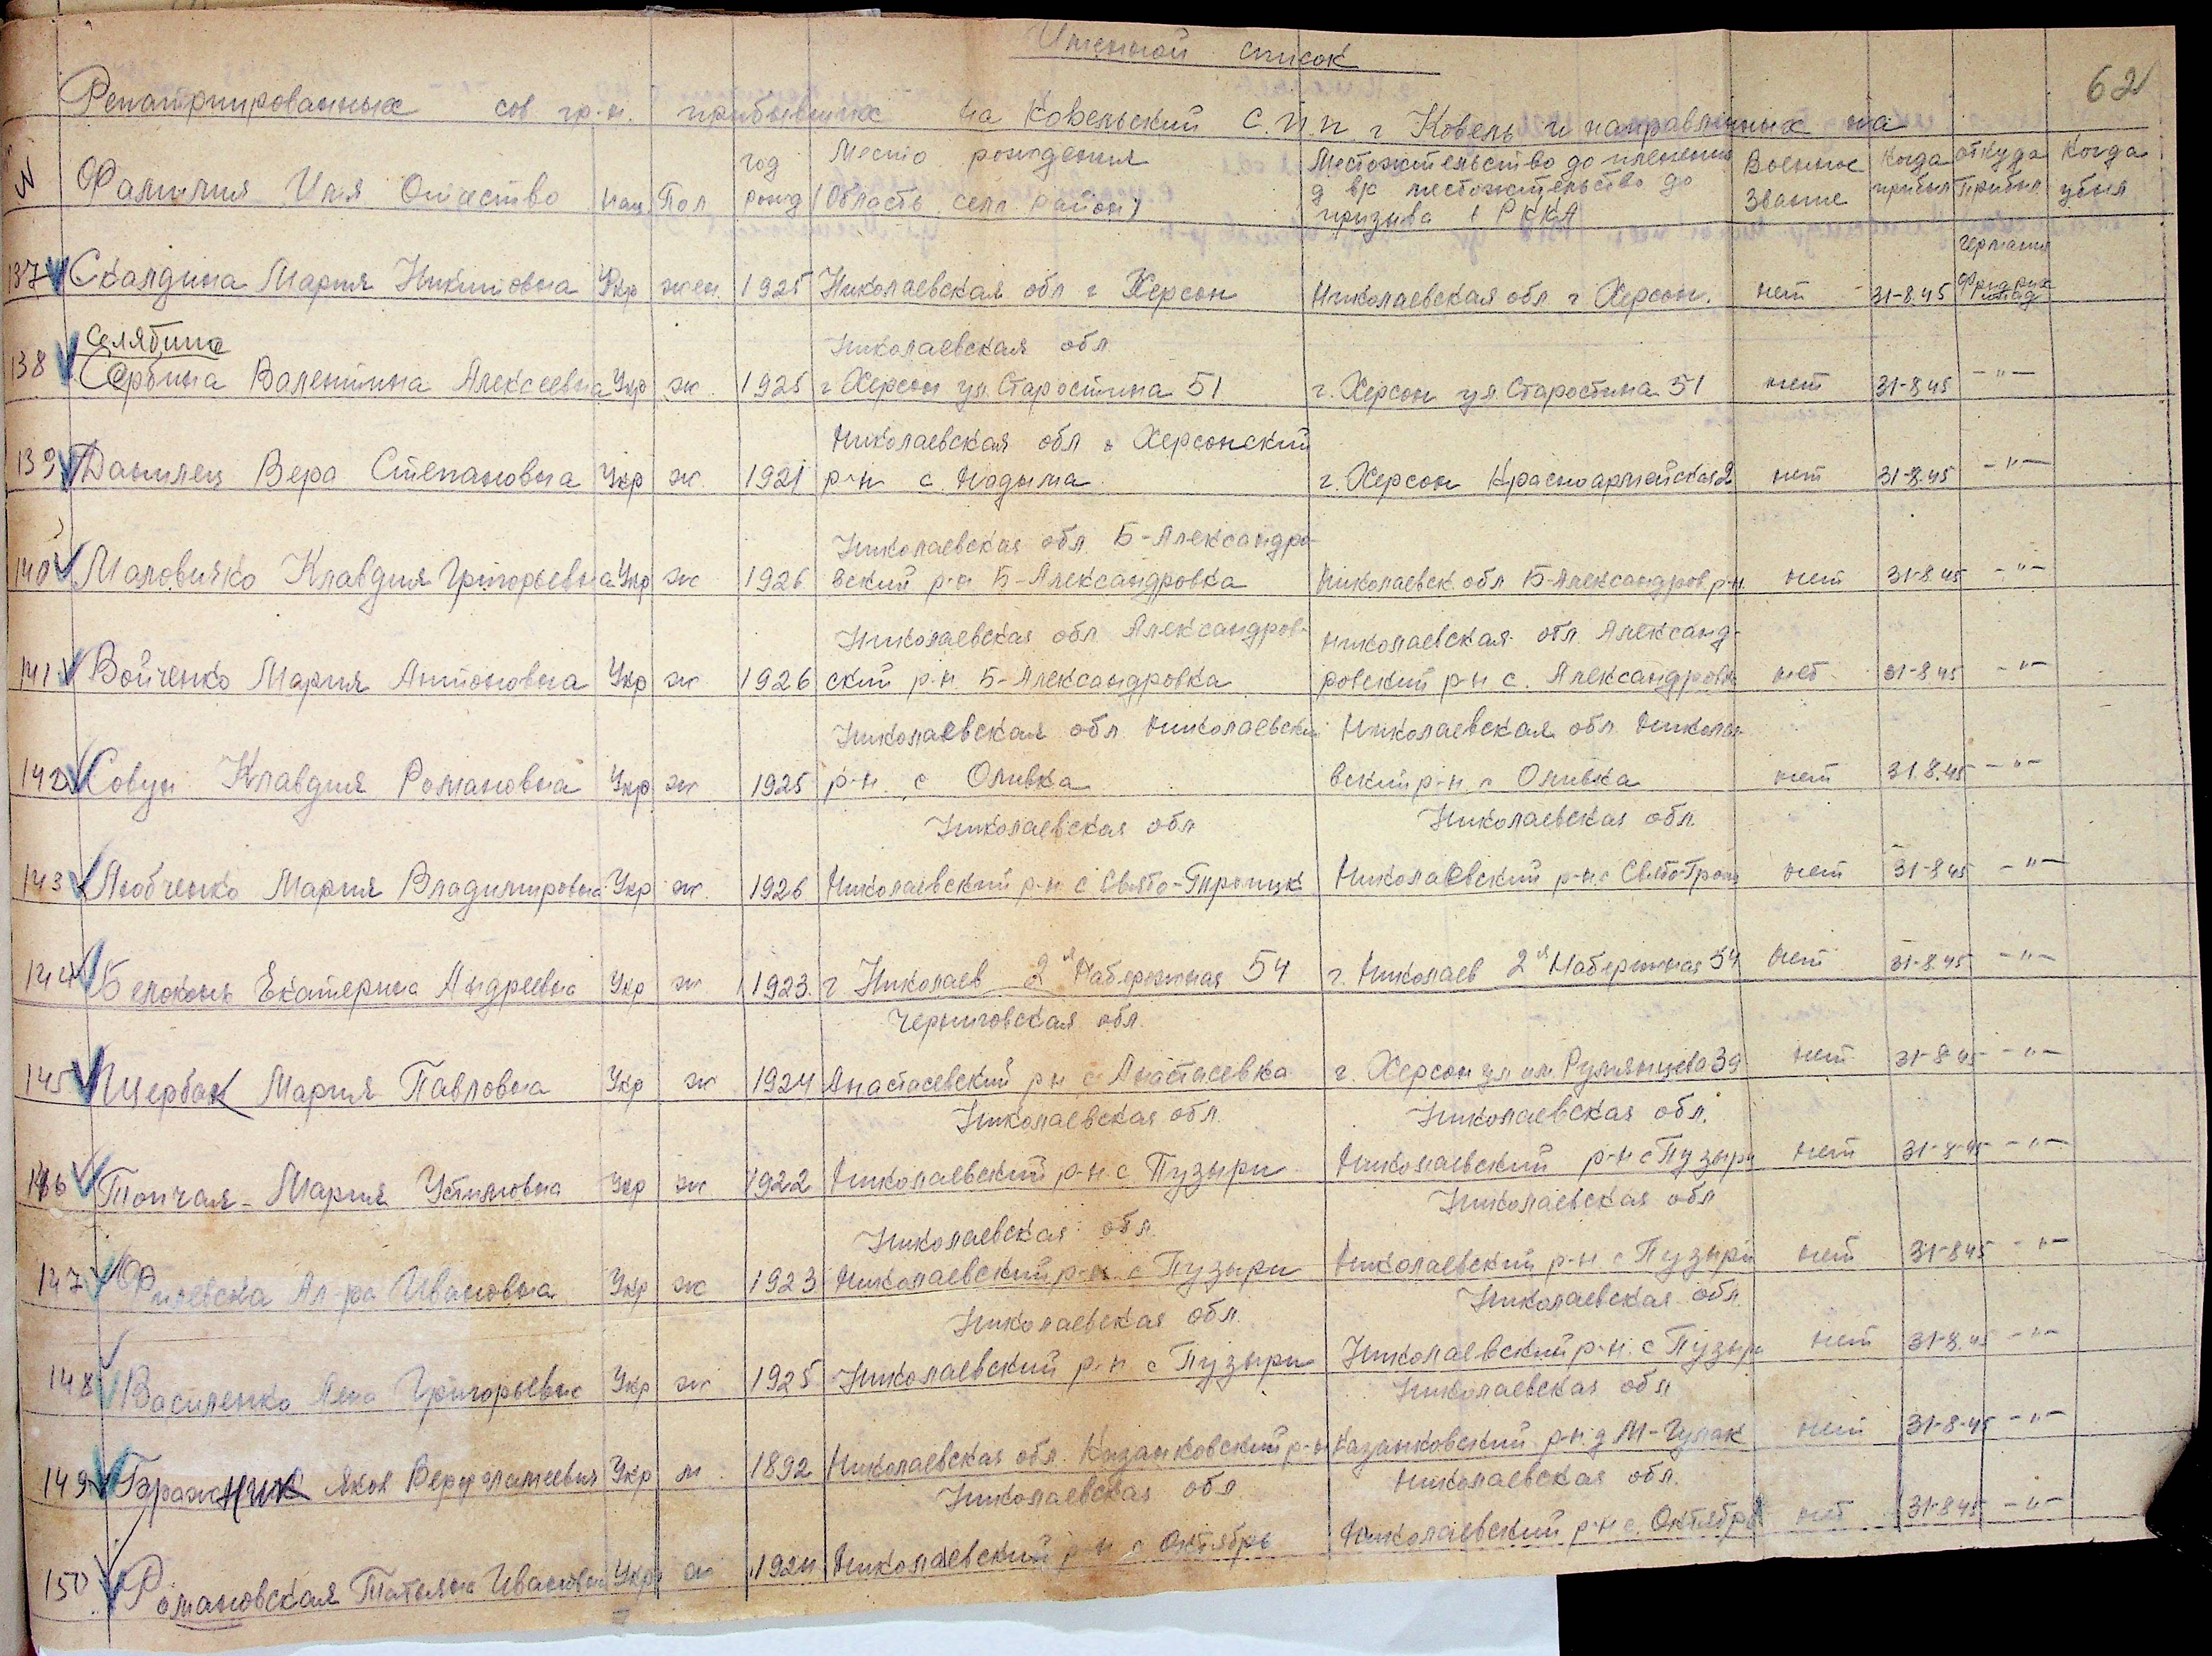 Именной список
62
Репатриированных сов гр-н. прибывших на Ковельский С.П.П. г Ковель и направлянных на
N Фамилия Имя Отчество нац Пол год рожд Место рождения (Область село район) Местожительство до пленения д вр местожительство до призыва в РККА Военное звание Когда прибыл откуда прибыл Когда убыл
137 Скалдина Мария Никитовна Укр жен 1925 Николаевская обл г Херсон Николаевская обл г Херсон. нет 31-8.45 Германия
Селябина
138 Сербина Валентина Алексеевна Укр ж. 1925 Николаевская обл
г Херсон ул. Старостина 51 г. Херсон ул. Старостина 51 нет 31-8.45 -"-
139 Данилец Вера Степановна Укр ж. 1921 Николаевская обл Херсонский
р-н с. г. Херсон Красноармейская 2 нет 31-8.45 -"-
140 Маловичко Клавдия Григорьевна Укр ж 1926 Николаевская обл. Б-Александро-
вский р-н Б-Александровка Николаевск. обл Б-Александров р-н. нет 31-8.45 -"-
141 Войченко Мария Антоновна Укр ж 1926 Николаевская обл Александров-
ский р-н Б-Александровка Николаевская обл Александ-
ровский р-н с. Александровк нет 31-8.45 -"-
142 Совун Клавдия Романовна Укр ж 1925 Николаевская обл Николаевски
р-н с Оливка Николаевская обл Николае
вский р-н с Оливка нет 31.8.45 -"-
143 Любченко Мария Владимировна Укр ж. 1926 Николаевская обл
Николаевский р-н с Свято-Троицк Николаевская обл.
Николаевский р-н с Свято-Троиц нет 31-8.45 -"-
144 Белоконь Екатерина Андреевна Укр ж 1923. г Николаев 2я Набережная 54 г. Николаев 2я Набережная 54 нет 31-8.45 -"-
145 Щербак Мария Павловна Укр ж 1924 Черниговская обл.
Анастасевский р н с Анастасевка г. Херсон ул им Румянцева 39 нет 31-8-45 -"-
146 Топчая Мария Устимовна Укр ж 1922 Николаевская обл.
Николаевский р-н с Пузыри Николаевская обл.
Николаевский р-н с Пузыри нет 31-8-45 -"-
147 Ал-ра Ивановна Укр ж 1923 Николаевская обл.
Николаевский р-н с Пузыри Николаевская обл
Николаевский р-н с Пузыри нет 31-8.45 -"-
148 Василенко Григорьевна Укр ж 1925 Николаевская обл.
Николаевский р-н с Пузыри Николаевская обл.
Николаевский р-н. с Пузыри нет 31-8.45 -"-
149 Бражник Яков Укр м. 1892 Николаевская обл. Казанковский р-н Николаевская обл
Казанковский р-н д М-Гулак нет 31-8-45 -"-
150 Романовская Татьяна Ивановна Укр ж 1924 Николаевская обл
Николаевский р-н с Октябрь Николаевская обл.
Николаевский р-н с. Октябрь нет 31-8.45 -"-